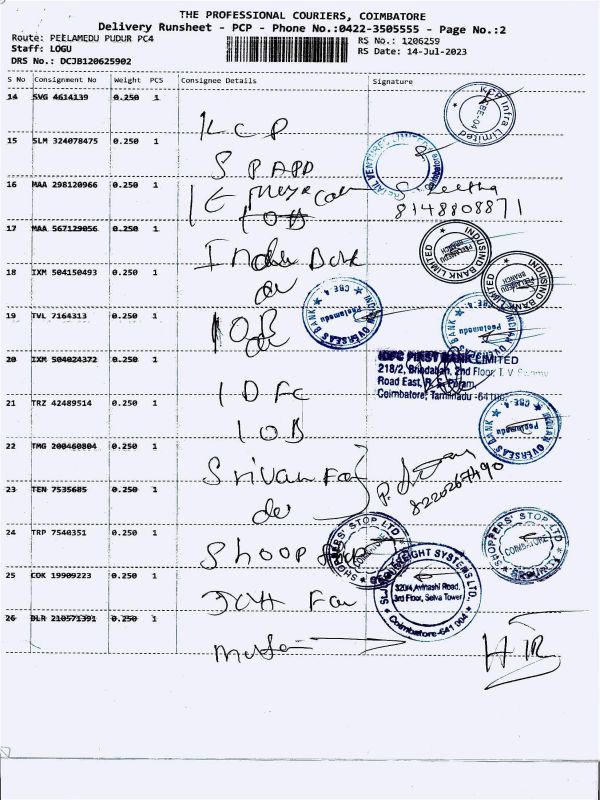 THE PROFESSIONAL COURIERS, COIMBATORE
Delivery Runsheet - PCP - Phone No.:0422-3505555 - Page No.:2
Route: PEELAMEDU PUDUR PC4
RS No.: 1206259
Staff: LOGU
RS Date: 14-Jul-2023
DRS No.: DCJB120625902
S No Consignment No Weight PCS Consignee Details Signature
14 SVG 4614139 0.250 1
KCP
KCP Infra Limited
CBE-04
15 SLM 324078475 0.250 1
S P APP
16 MAA 298120966 0.250 1
8148808871
IOB
17 MAA 567129056 0.250 1
INDUSIND BANK LIMITED
PEELAMEDU BRANCH
INDUSIND BANK LIMITED
PEELAMEDU BRANCH
18 IXM 504150493 0.250 1
INDIAN OVERSEAS BANK
Peelamedu
CBE. 4.
19 TVL 7164313 0.250 1
IOB
INDIAN OVERSEAS BANK
Peelamedu
CBE. 4.
20 IXM 504024372 0.250 1
IDFC
IDFC FIRST BANK LIMITED
218/2, Brindaban, 2nd Floor, T. V. Swamy
Road East, R. S. Puram,
Coimbatore, Tamilnadu -641
21 TRZ 42489514 0.250 1
IOB
INDIAN OVERSEAS BANK
Peelamedu
CBE. 4.
22 TMG 200460804 0.250 1
23 TEN 7535685 0.250 1
24 TRP 7540351 0.250 1
SHOPPERS' STOP LTD
COIMBATORE
SHOPPERS' STOP LTD
COIMBATORE
25 COK 19909223 0.250 1
320/4, Avinashi Road,
3rd Floor, Selva Tower
Coimbatore-641 004
26 DLR 210571391 0.250 1